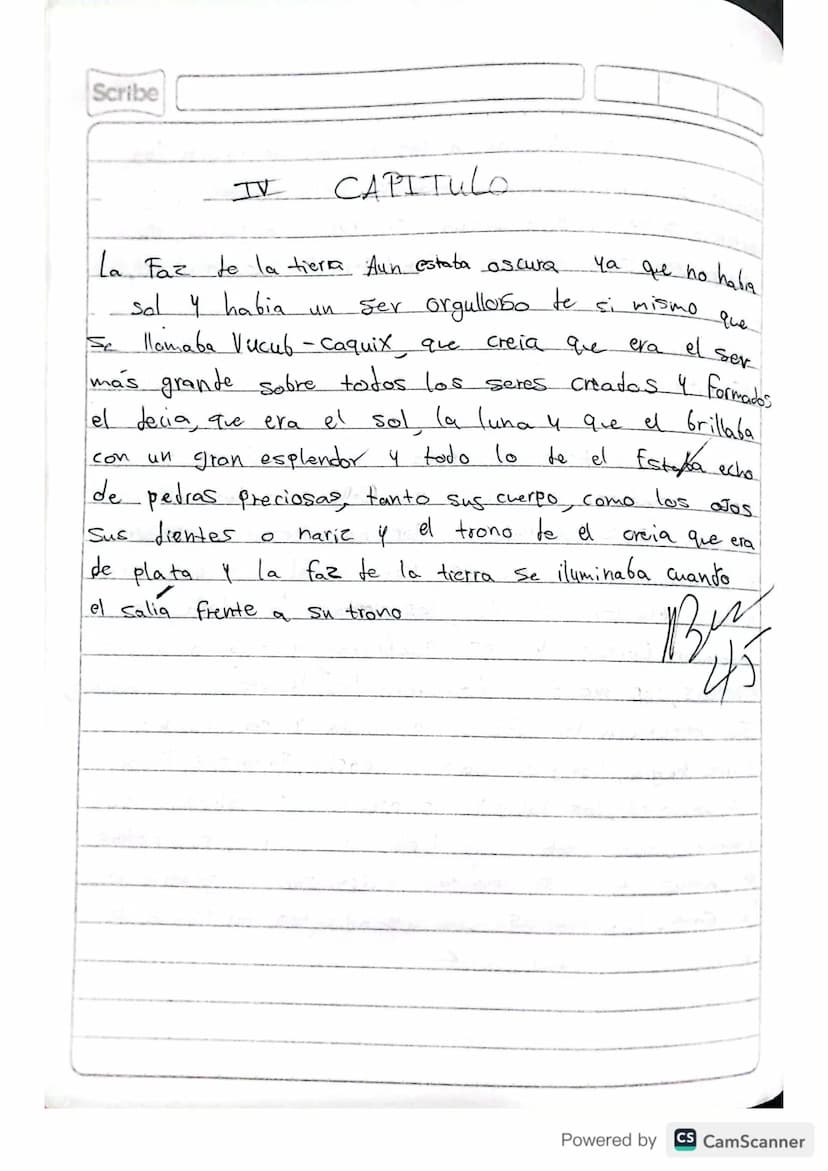 Scribe
IV CAPITULO
La Faz de la tierra Aun estaba oscura ya que no habia
sol y habia un ser orgulloso de si mismo que
se llamaba Vucub-Caquix, que creia que era el ser
más grande sobre todos los seres creados y formados
el decia, que era el sol, la luna y que el brillaba
con un gran esplendor y todo lo de el Estaba echo
de pedras preciosas, tanto sus cuerpo, como los ojos
sus dientes o nariz y el trono de el creia que era
de plata y la faz de la tierra se iluminaba cuando
el salia frente a su trono
45
Powered by CS CamScanner